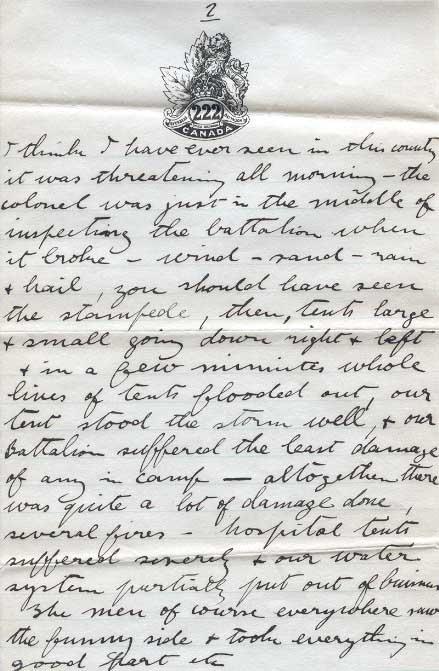 2
222
CANADA
I think I have ever seen in this country
it was threatening all morning - the
colonel was just in the middle of
inspecting the battalion when
it broke - wind - sand - rain
& hail, you should have seen
the stampede, then, tents large
& small going down right & left
& in a few minutes whole
lines of tents flooded out, our
tent stood the storm well, & our
Battalion suffered the least damage
of any in camp - altogether there
was quite a lot of damage done,
several fires - hospital tents
suffered severely & our water
system partially put out of business
The men of course everywhere saw
the funny side & took everything in
good part etc